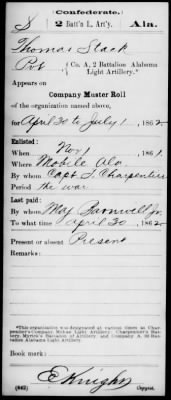 Confederate.
S 2 Batt'n L. Art'y. Ala.
Thomas Stack
Pvt Co. A, 2 Battalion Alabama
Light Artillery.*
Appears on
Company Muster Roll
of the organization named above,
for April 30 to July 1, 1862.
Enlisted:
When Nov 1, 1861.
Where Mobile Ala.
By whom Capt J. Charpentier
Period the war
Last paid:
By whom Maj Barnwell Jr
To what time April 30, 1862.
Present or absent Present
Remarks:
*This organization was designated at various times as Char-
pentier's Company Mobile Light Artillery; Charpentier's Bat-
tery, Myrick's Battalion of Artillery, and Company A, 2d Bat-
talion Alabama Light Artillery.
Book mark:
E Knight
(642) Copyist.